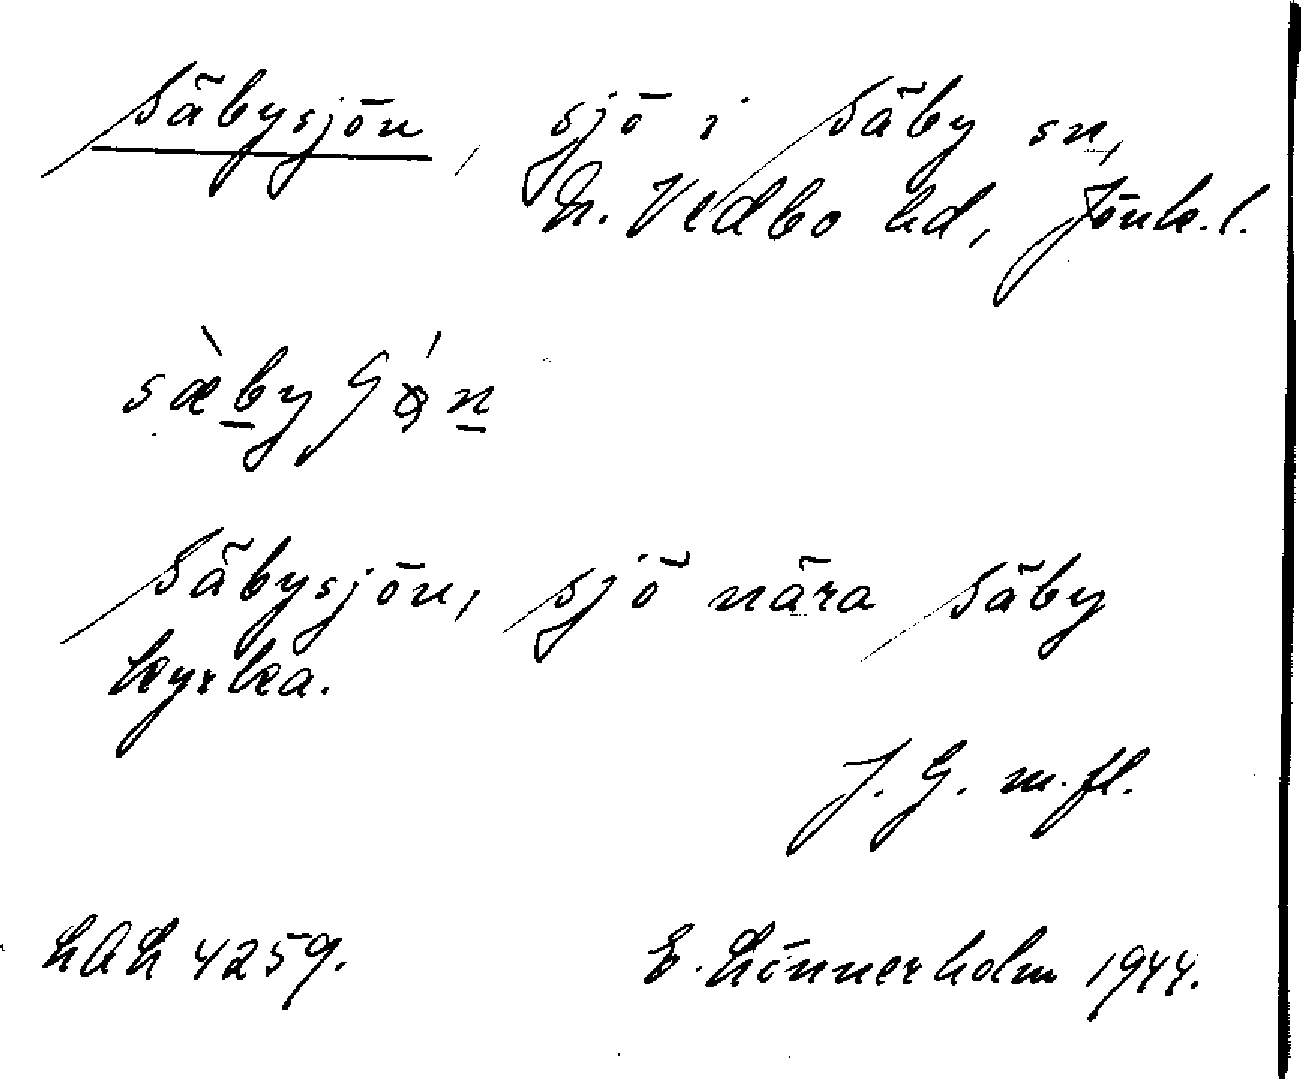 Säbysjön, sjö i Säby sn,
N. Vedbo hd, Jönk. l.
Säbysjön, sjö nära Säby
kyrka.
J. G. m. fl.
LAL 4259.
E. Lönnerholm 1944.